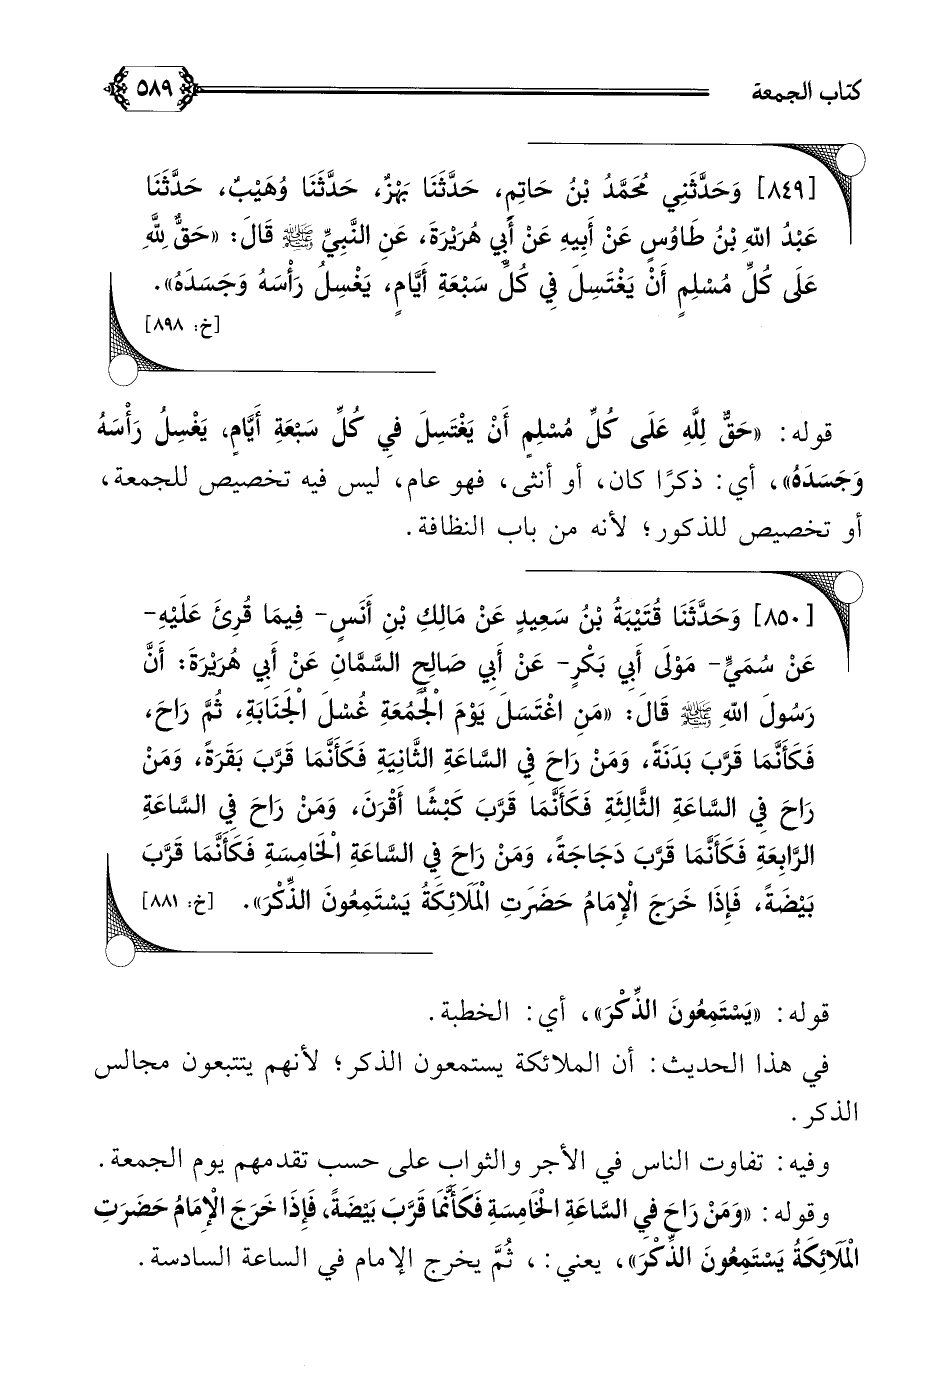 كتاب الجمعة
٥٨٩
[٨٤٩] وَحَدَّثَنِي مُحَمَّدُ بْنُ حَاتِمٍ، حَدَّثَنَا بَهْزٌ، حَدَّثَنَا وُهَيْبٌ، حَدَّثَنَا
عَبْدُ اللهِ بْنُ طَاوُسٍ عَنْ أَبِيهِ عَنْ أَبِي هُرَيْرَةَ، عَنِ النَّبِيِّ ﷺ قَالَ: «حَقٌّ لِلَّهِ
عَلَى كُلِّ مُسْلِمٍ أَنْ يَغْتَسِلَ فِي كُلِّ سَبْعَةِ أَيَّامٍ، يَغْسِلُ رَأْسَهُ وَجَسَدَهُ».
[خ: ٨٩٨]
قوله: «حَقٌّ لِلَّهِ عَلَى كُلِّ مُسْلِمٍ أَنْ يَغْتَسِلَ فِي كُلِّ سَبْعَةِ أَيَّامٍ، يَغْسِلُ رَأْسَهُ
وَجَسَدَهُ»، أي: ذكرًا كان، أو أنثى، فهو عام، ليس فيه تخصيص للجمعة،
أو تخصيص للذكور؛ لأنه من باب النظافة.
[٨٥٠] وَحَدَّثَنَا قُتَيْبَةُ بْنُ سَعِيدٍ عَنْ مَالِكِ بْنِ أَنَسٍ- فِيمَا قُرِئَ عَلَيْهِ-
عَنْ سُمَيٍّ- مَوْلَى أَبِي بَكْرٍ- عَنْ أَبِي صَالِحٍ السَّمَّانِ عَنْ أَبِي هُرَيْرَةَ: أَنَّ
رَسُولَ اللهِ ﷺ قَالَ: «مَنِ اغْتَسَلَ يَوْمَ الْجُمُعَةِ غُسْلَ الْجَنَابَةِ، ثُمَّ رَاحَ،
فَكَأَنَّمَا قَرَّبَ بَدَنَةً، وَمَنْ رَاحَ فِي السَّاعَةِ الثَّانِيَةِ فَكَأَنَّمَا قَرَّبَ بَقَرَةً، وَمَنْ
رَاحَ فِي السَّاعَةِ الثَّالِثَةِ فَكَأَنَّمَا قَرَّبَ كَبْشًا أَقْرَنَ، وَمَنْ رَاحَ فِي السَّاعَةِ
الرَّابِعَةِ فَكَأَنَّمَا قَرَّبَ دَجَاجَةً، وَمَنْ رَاحَ فِي السَّاعَةِ الْخَامِسَةِ فَكَأَنَّمَا قَرَّبَ
بَيْضَةً، فَإِذَا خَرَجَ الْإِمَامُ حَضَرَتِ الْمَلَائِكَةُ يَسْتَمِعُونَ الذِّكْرَ». [خ: ٨٨١]
قوله: «يَسْتَمِعُونَ الذِّكْرَ»، أي: الخطبة.
في هذا الحديث: أن الملائكة يستمعون الذكر؛ لأنهم يتتبعون مجالس
الذكر.
وفيه: تفاوت الناس في الأجر والثواب على حسب تقدمهم يوم الجمعة.
وقوله: «وَمَنْ رَاحَ فِي السَّاعَةِ الْخَامِسَةِ فَكَأَنَّمَا قَرَّبَ بَيْضَةً، فَإِذَا خَرَجَ الْإِمَامُ حَضَرَتِ
الْمَلَائِكَةُ يَسْتَمِعُونَ الذِّكْرَ»، يعني: ، ثُمَّ يخرج الإمام في الساعة السادسة.